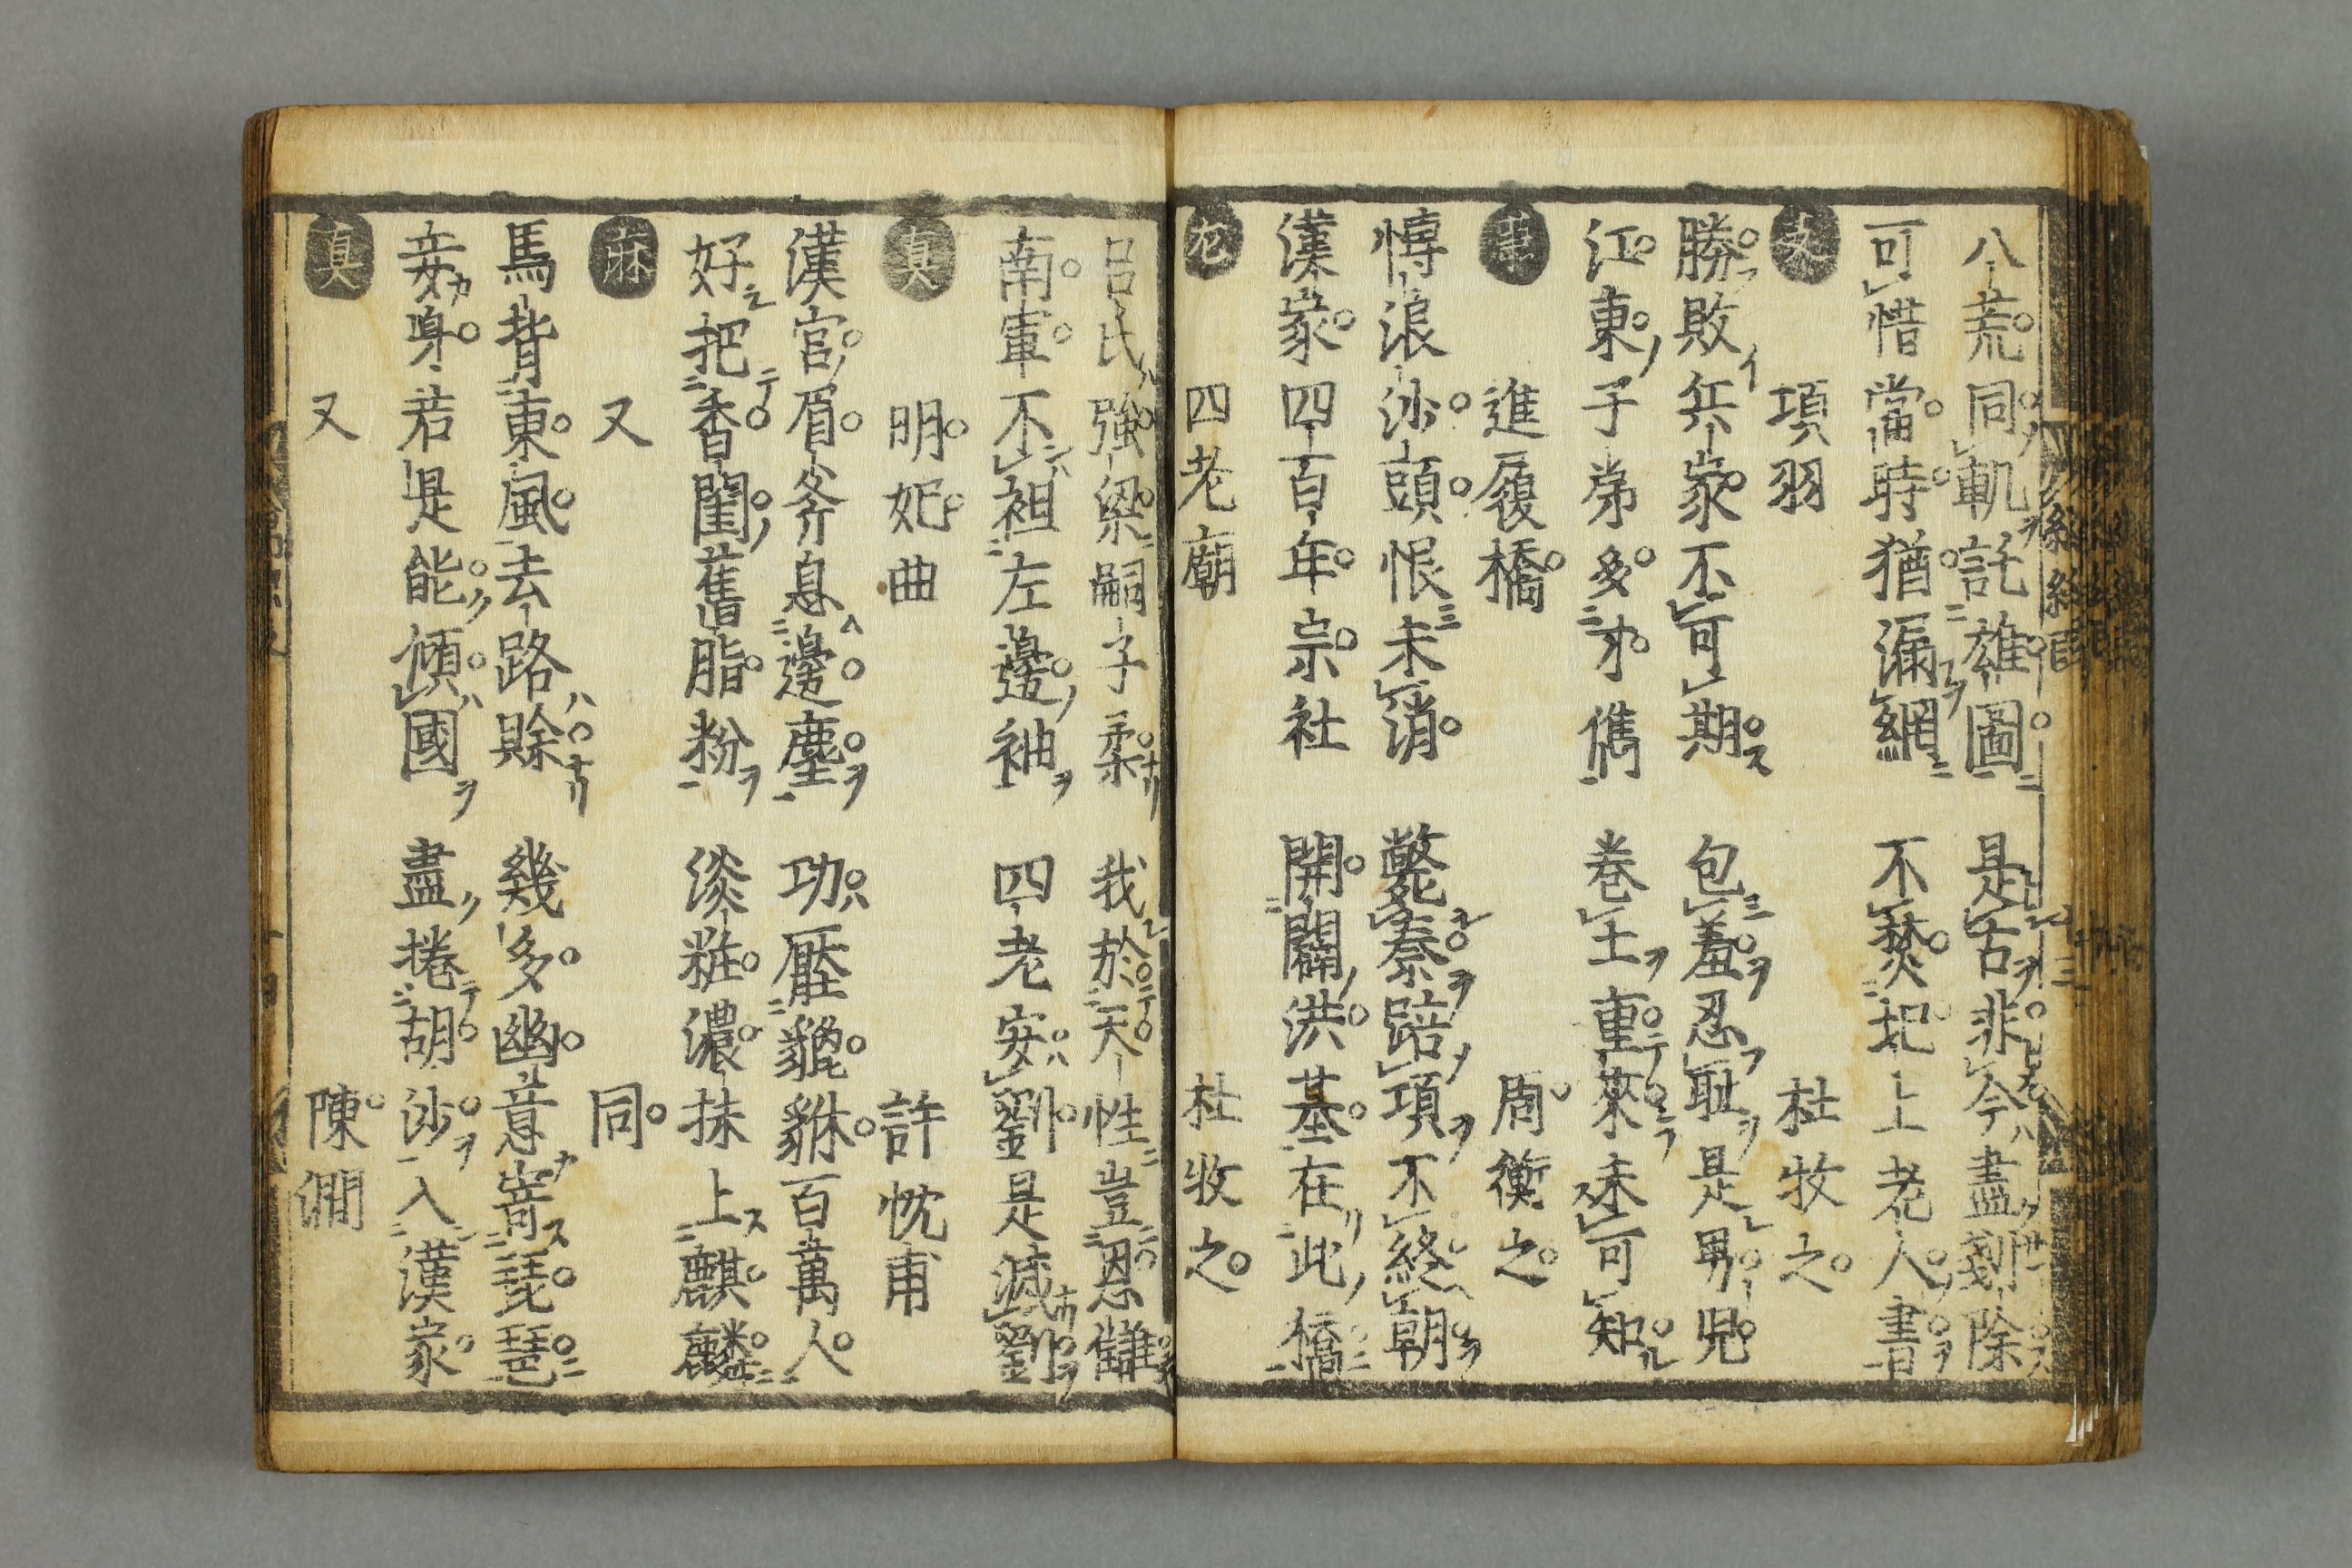 八荒同軌託雄圖　是古非今盡剗除
可惜當時猶漏網　不焚圯上老人書
支　項羽　杜牧之
勝敗兵家不可期　包羞忍耻是男兒
江東子弟多才儁　卷土重來未可知
進履橋　周衡之
愽浪沙頭恨未消　斃秦踣項不終朝
漢家四百年宗社　開闢洪基在此橋
四老廟　杜牧之
呂氏強梁嗣子柔　我於天性豈恩讎
南軍不袒左邊袖　四老安劉是滅劉
真　明妃曲　許忱甫
漢官眉斧息邊塵　功壓貔貅百萬人
好把香閨舊脂粉　淡粧濃抹上麒麟
麻　又　同
馬背東風去路賒　幾多幽意寄琵琶
妾身若是能傾國　盡捲胡沙入漢家
真　又　陳㵎